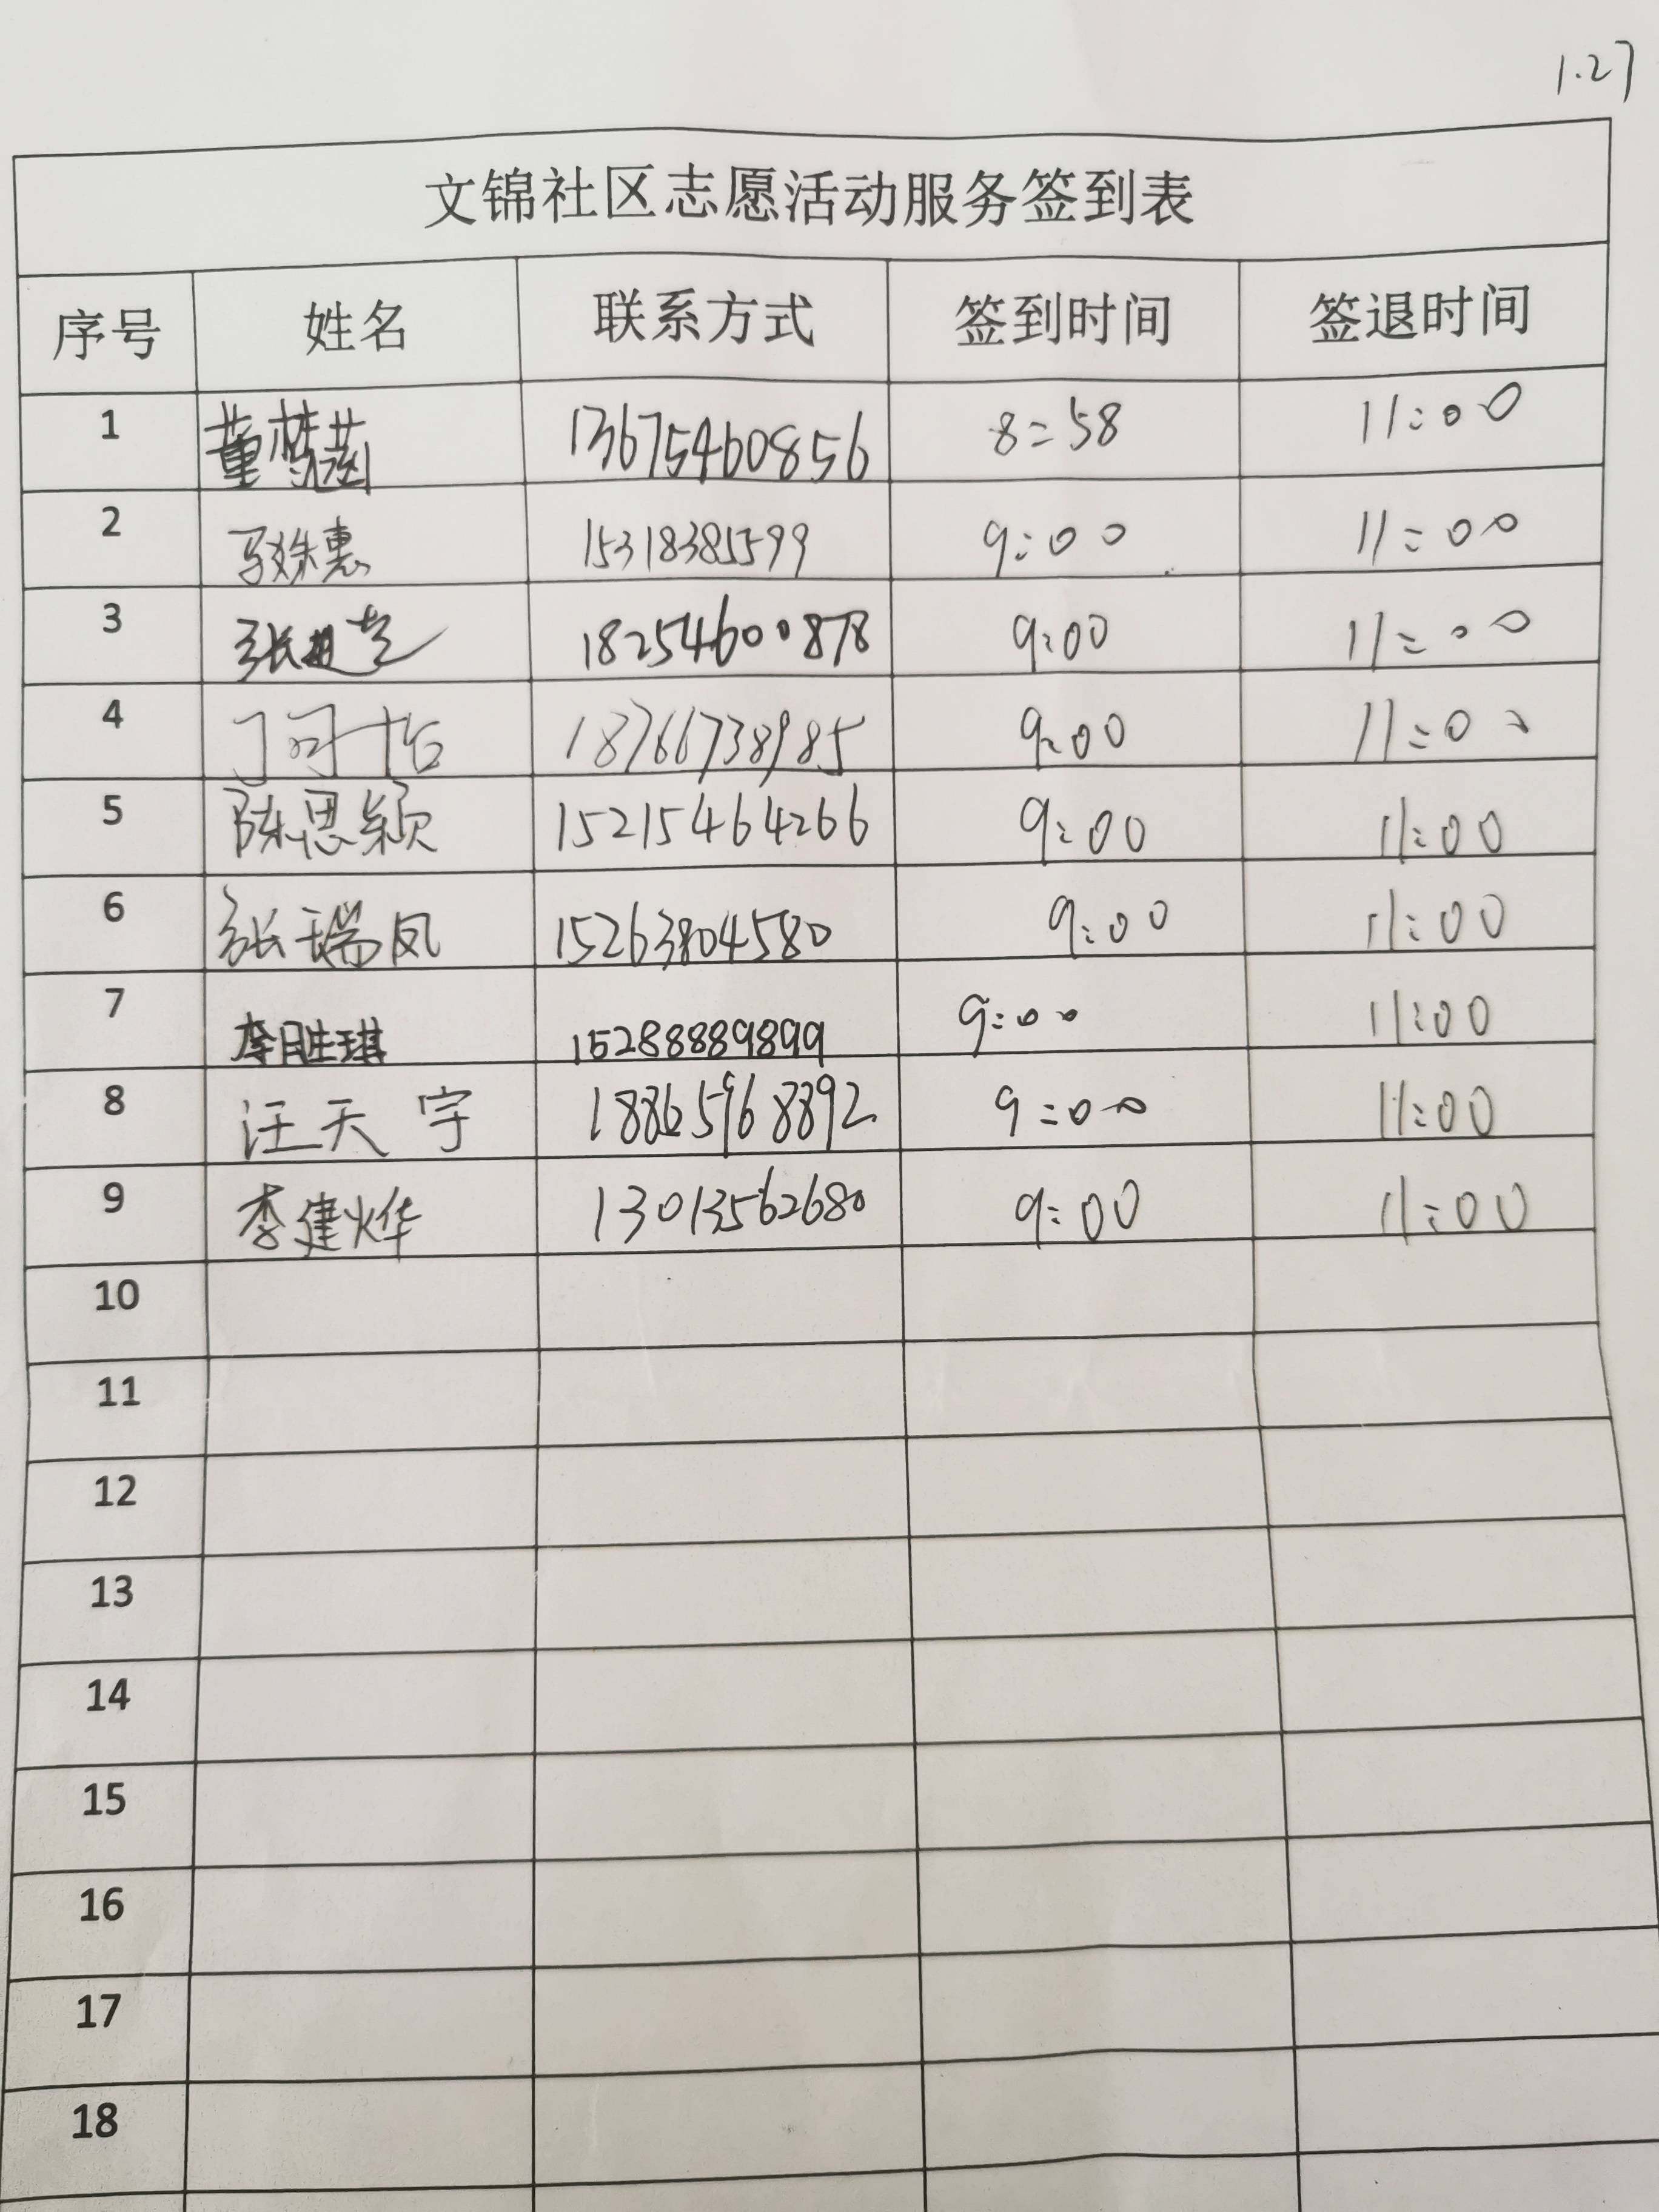 1.27
文锦社区志愿活动服务签到表
序号 姓名 联系方式 签到时间 签退时间
1 董梦菡 13675460856 8:58 11:00
2 15318385599 9:00 11:00
3 18254600878 9:00 11:00
4 丁可怡 18766738985 9:00 11:00
5 陈思颖 15215464266 9:00 11:00
6 张瑞凤 15263804580 9:00 11:00
7 李胜琪 15288889899 9:00 11:00
8 汪天宇 18865968892 9:00 11:00
9 李建烨 13013562680 9:00 11:00
10
11
12
13
14
15
16
17
18